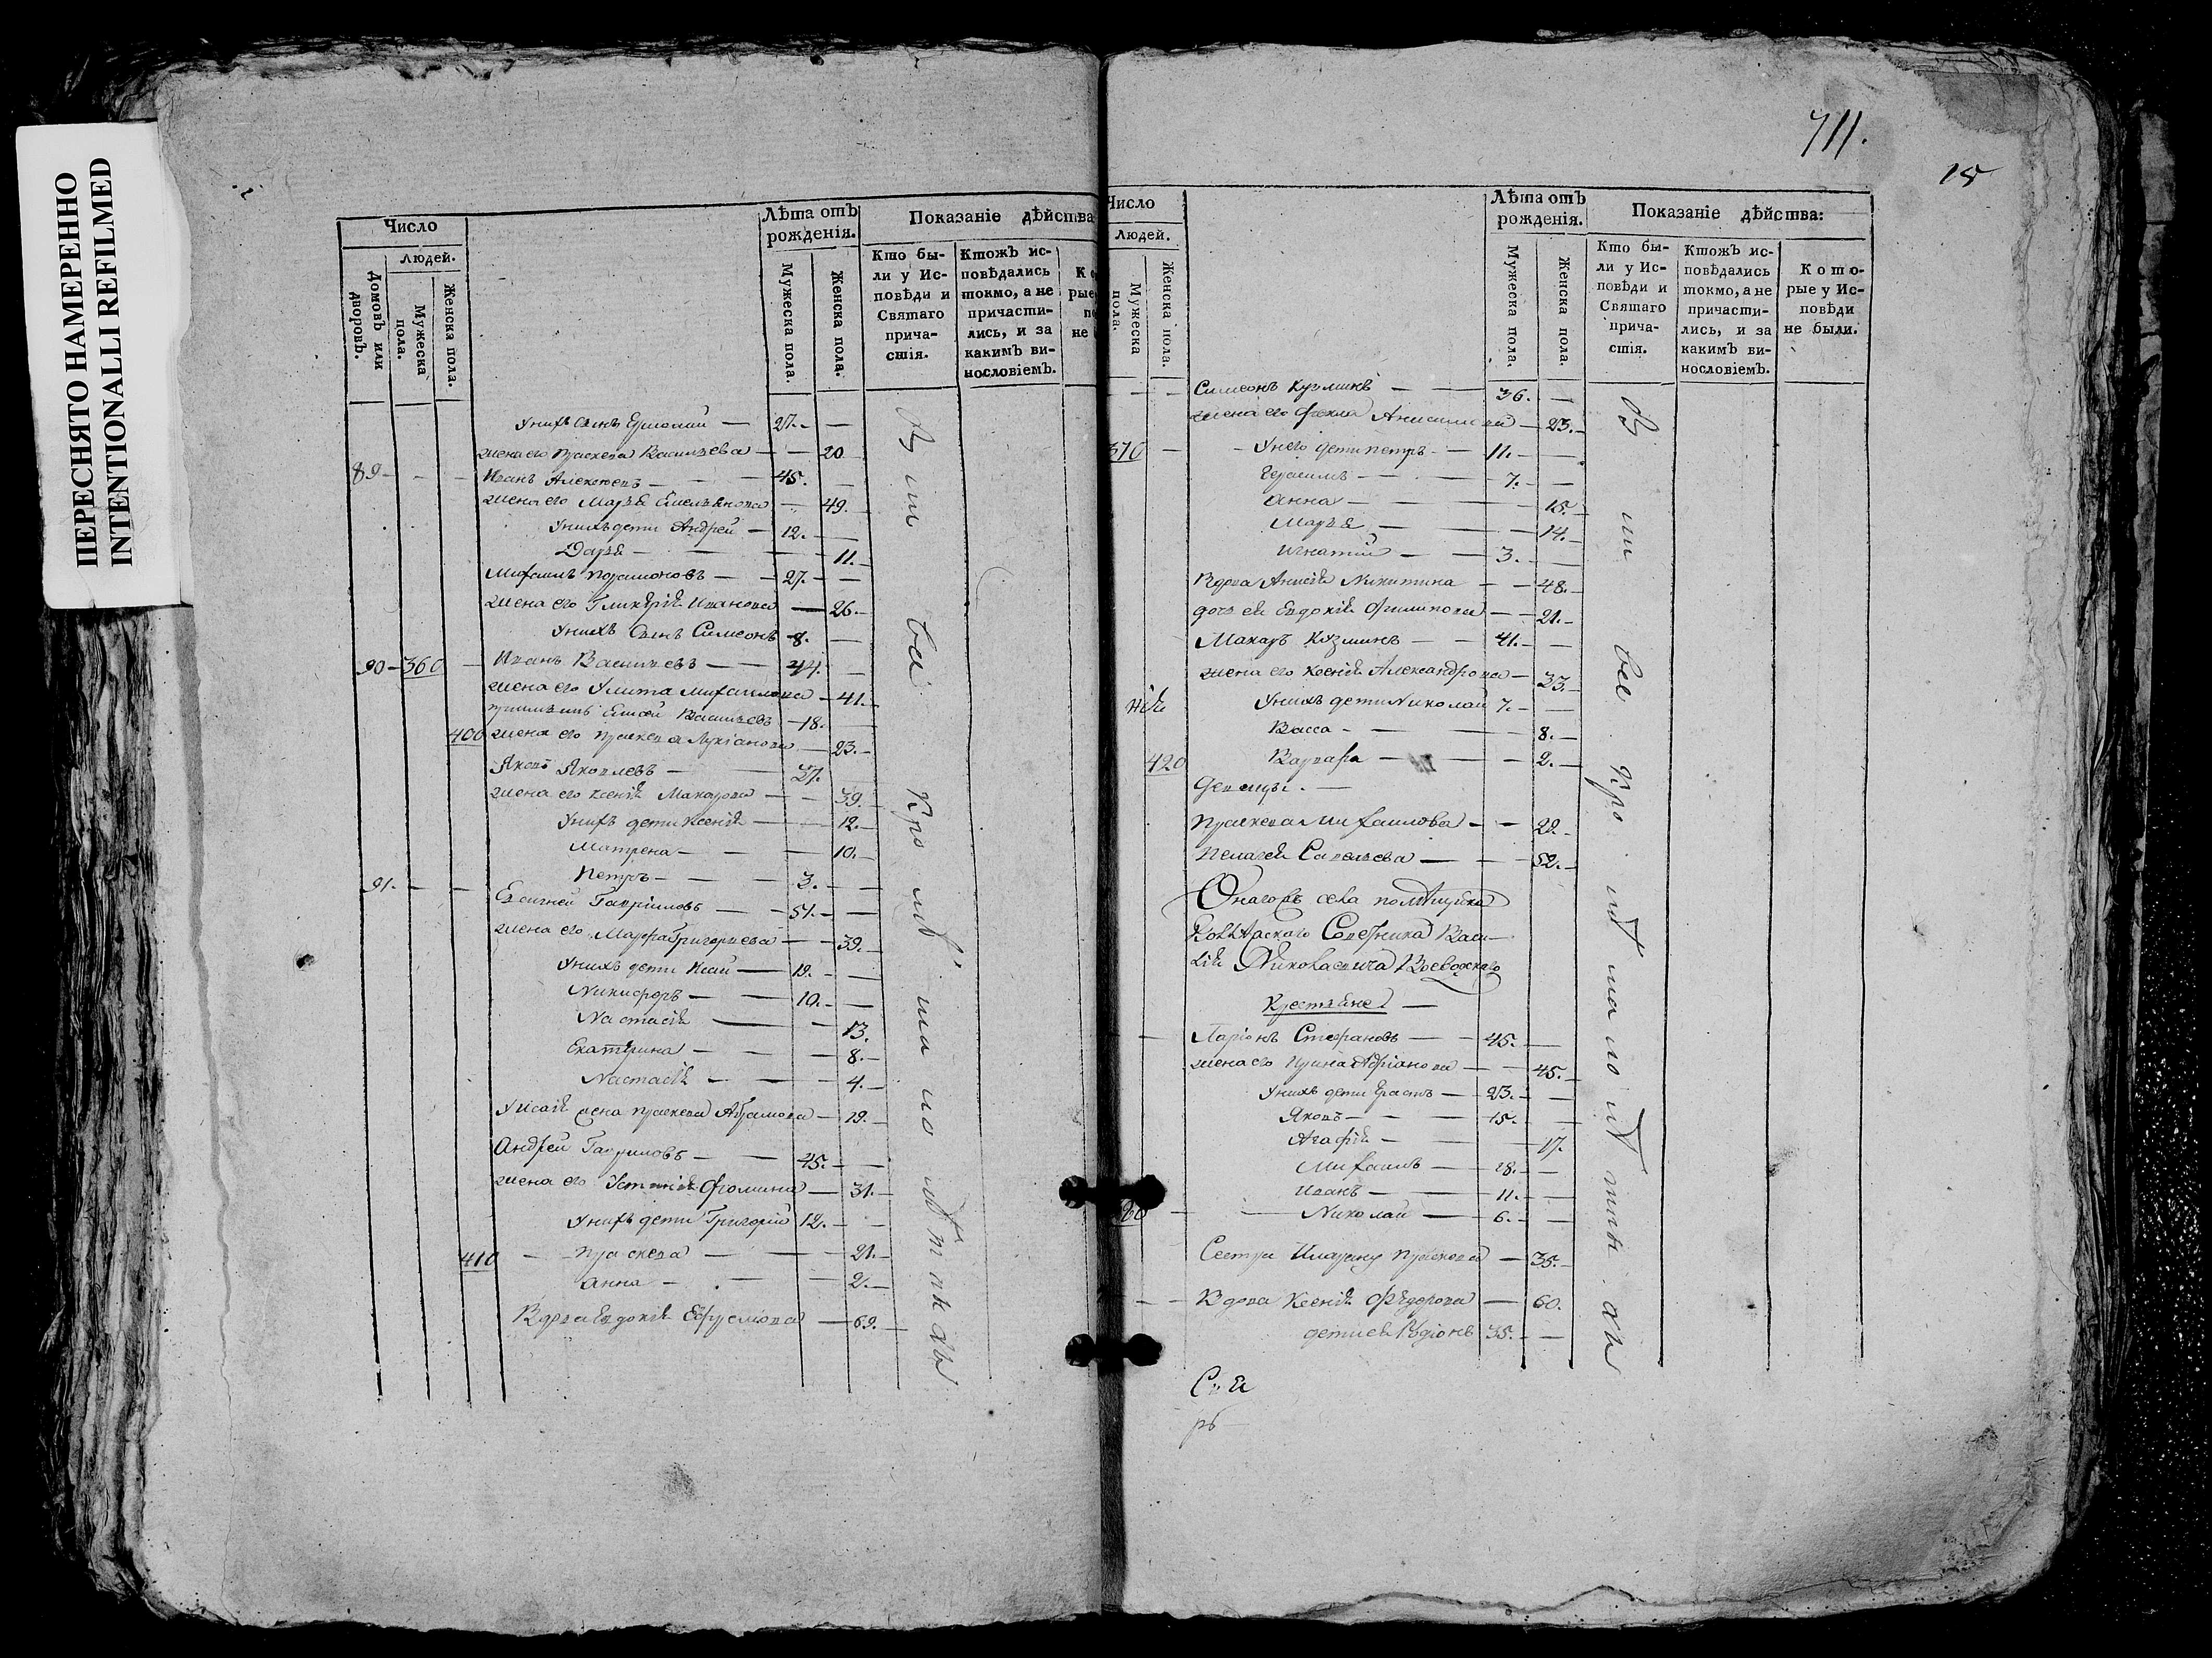 ПЕРЕСНЯТО НАМЕРЕННО
INTENTIONALLI REFILMED
Число
Людей.
Домовъ или дворовъ.
Мужеска пола.
Женска пола.
Лѣта отъ рожденія.
Мужеска пола.
Женска пола.
Показаніе дѣйства
Кто были у Исповѣди и Святаго причастія.
Ктожъ исповѣдались токмо, а не причастились, и за какимъ винословіемъ.
Унихъ сынъ Ермолай — 21. —
жена его Праскева Васильева — 20
89 — Иванъ Алексѣевъ — 45. —
жена его Марья Емельянова — 49. —
Унихъ дети Андрей — 12. —
Дарья — 11. —
Михаилъ Парамоновъ — 27. —
жена его Гликерія Иванова — 26. —
Унихъ сынъ Симеонъ 8. —
90 — 360 — Иванъ Васильевъ — 44. —
жена его Улита Михаилова — 41. —
Елисей Васильевъ — 18. —
400 жена его Праскева Лукіанова — 23. —
Яковъ Яковлевъ — 37. —
жена его Ксенія Макарова — 39. —
Унихъ дети Ксенія — 12. —
Матрена — 10. —
Петръ — 3. —
91. — Евсигней Гавріиловъ — 51. —
жена его Марфа Григорьева — 39. —
Унихъ дети Исай — 19. —
Никифоръ — 10. —
Настасія — 13.
Екатерина — 8. —
Настасія — 4. —
Уисаія жена Праскева Абрамова — 19. —
Андрей Гавриловъ — 45. —
жена его Устинія Фомина — 31. —
Унихъ дети Григорій 12. —
410 — Праскева — 21. —
Анна — 2. —
Вдова Евдокія — 69. —
711.
15
Число
Людей.
Мужеска пола.
Женска пола.
Лѣта отъ рожденія.
Мужеска пола.
Женска пола.
Показаніе дѣйства:
Кто были у Исповѣди и Святаго причастія.
Ктожъ исповѣдались токмо, а не причастились, и за какимъ винословіемъ.
Которые у Исповѣди не были.
Симеонъ Кузминъ — 36. —
жена его Фекла Анисимова — 23. —
370 — Унего дети Петръ — 11. —
Герасимъ — 7. —
Анна — 15. —
Марья — 14. —
Игнатій — 3. —
Вдова Анисія Никитина — 48. —
дочь ея Евдокія Филипова — 21. —
Макаръ Кузминъ — 41. —
жена его Ксенія Александрова — 33. —
Унихъ дети Николай 7. —
Васса — 8. —
420 Варвара — 2. —
Девицы. —
Праскева Михаилова — 29. —
Пелагея Савельева — 52. —
Онагожъ села помѣщика
Советника Васи-
лія Николаевича Воеводскаго
Крестьяне
Ларіонъ Стефановъ — 45. —
жена его Ирина Адріанова — 45. —
Унихъ дети Ерастъ — 23. —
Яковъ — 15. —
Агафія — 17.
Михаилъ — 18. —
Иванъ — 11. —
Николай — 6. —
Сестра Праскева — 35. —
Вдова Ксенія Федорова — 60.
дети ея Родіонъ 35. —